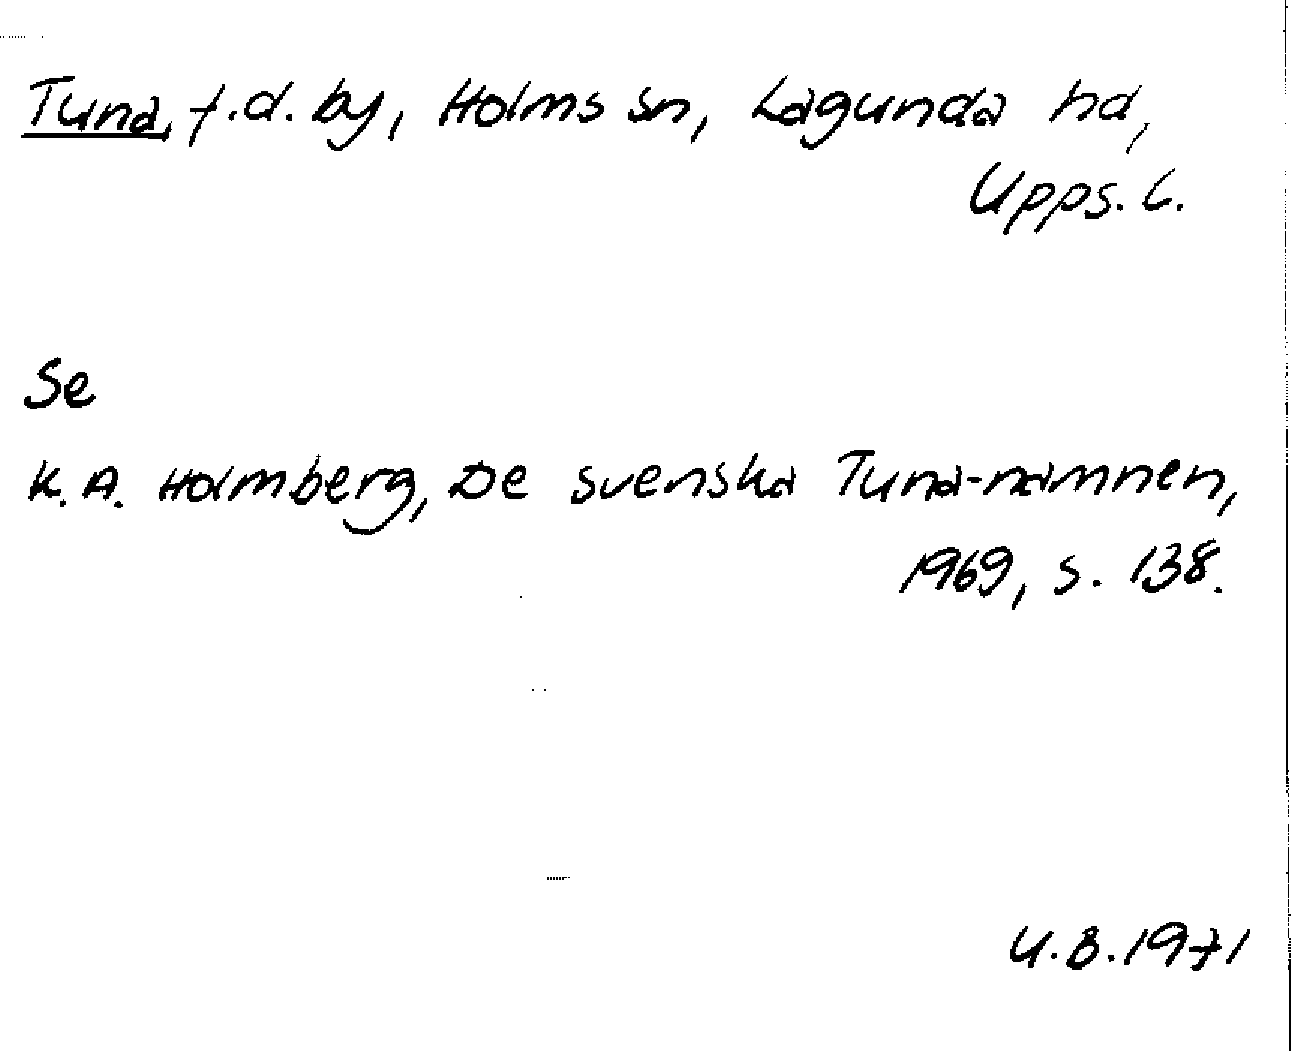 Tuna, f.d. by, Holms sn, Lagunda hd,
Upps. l.
Se
K. A. Holmberg, De svenska Tuna-namnen,
1969, s. 138.
U.B. 1971